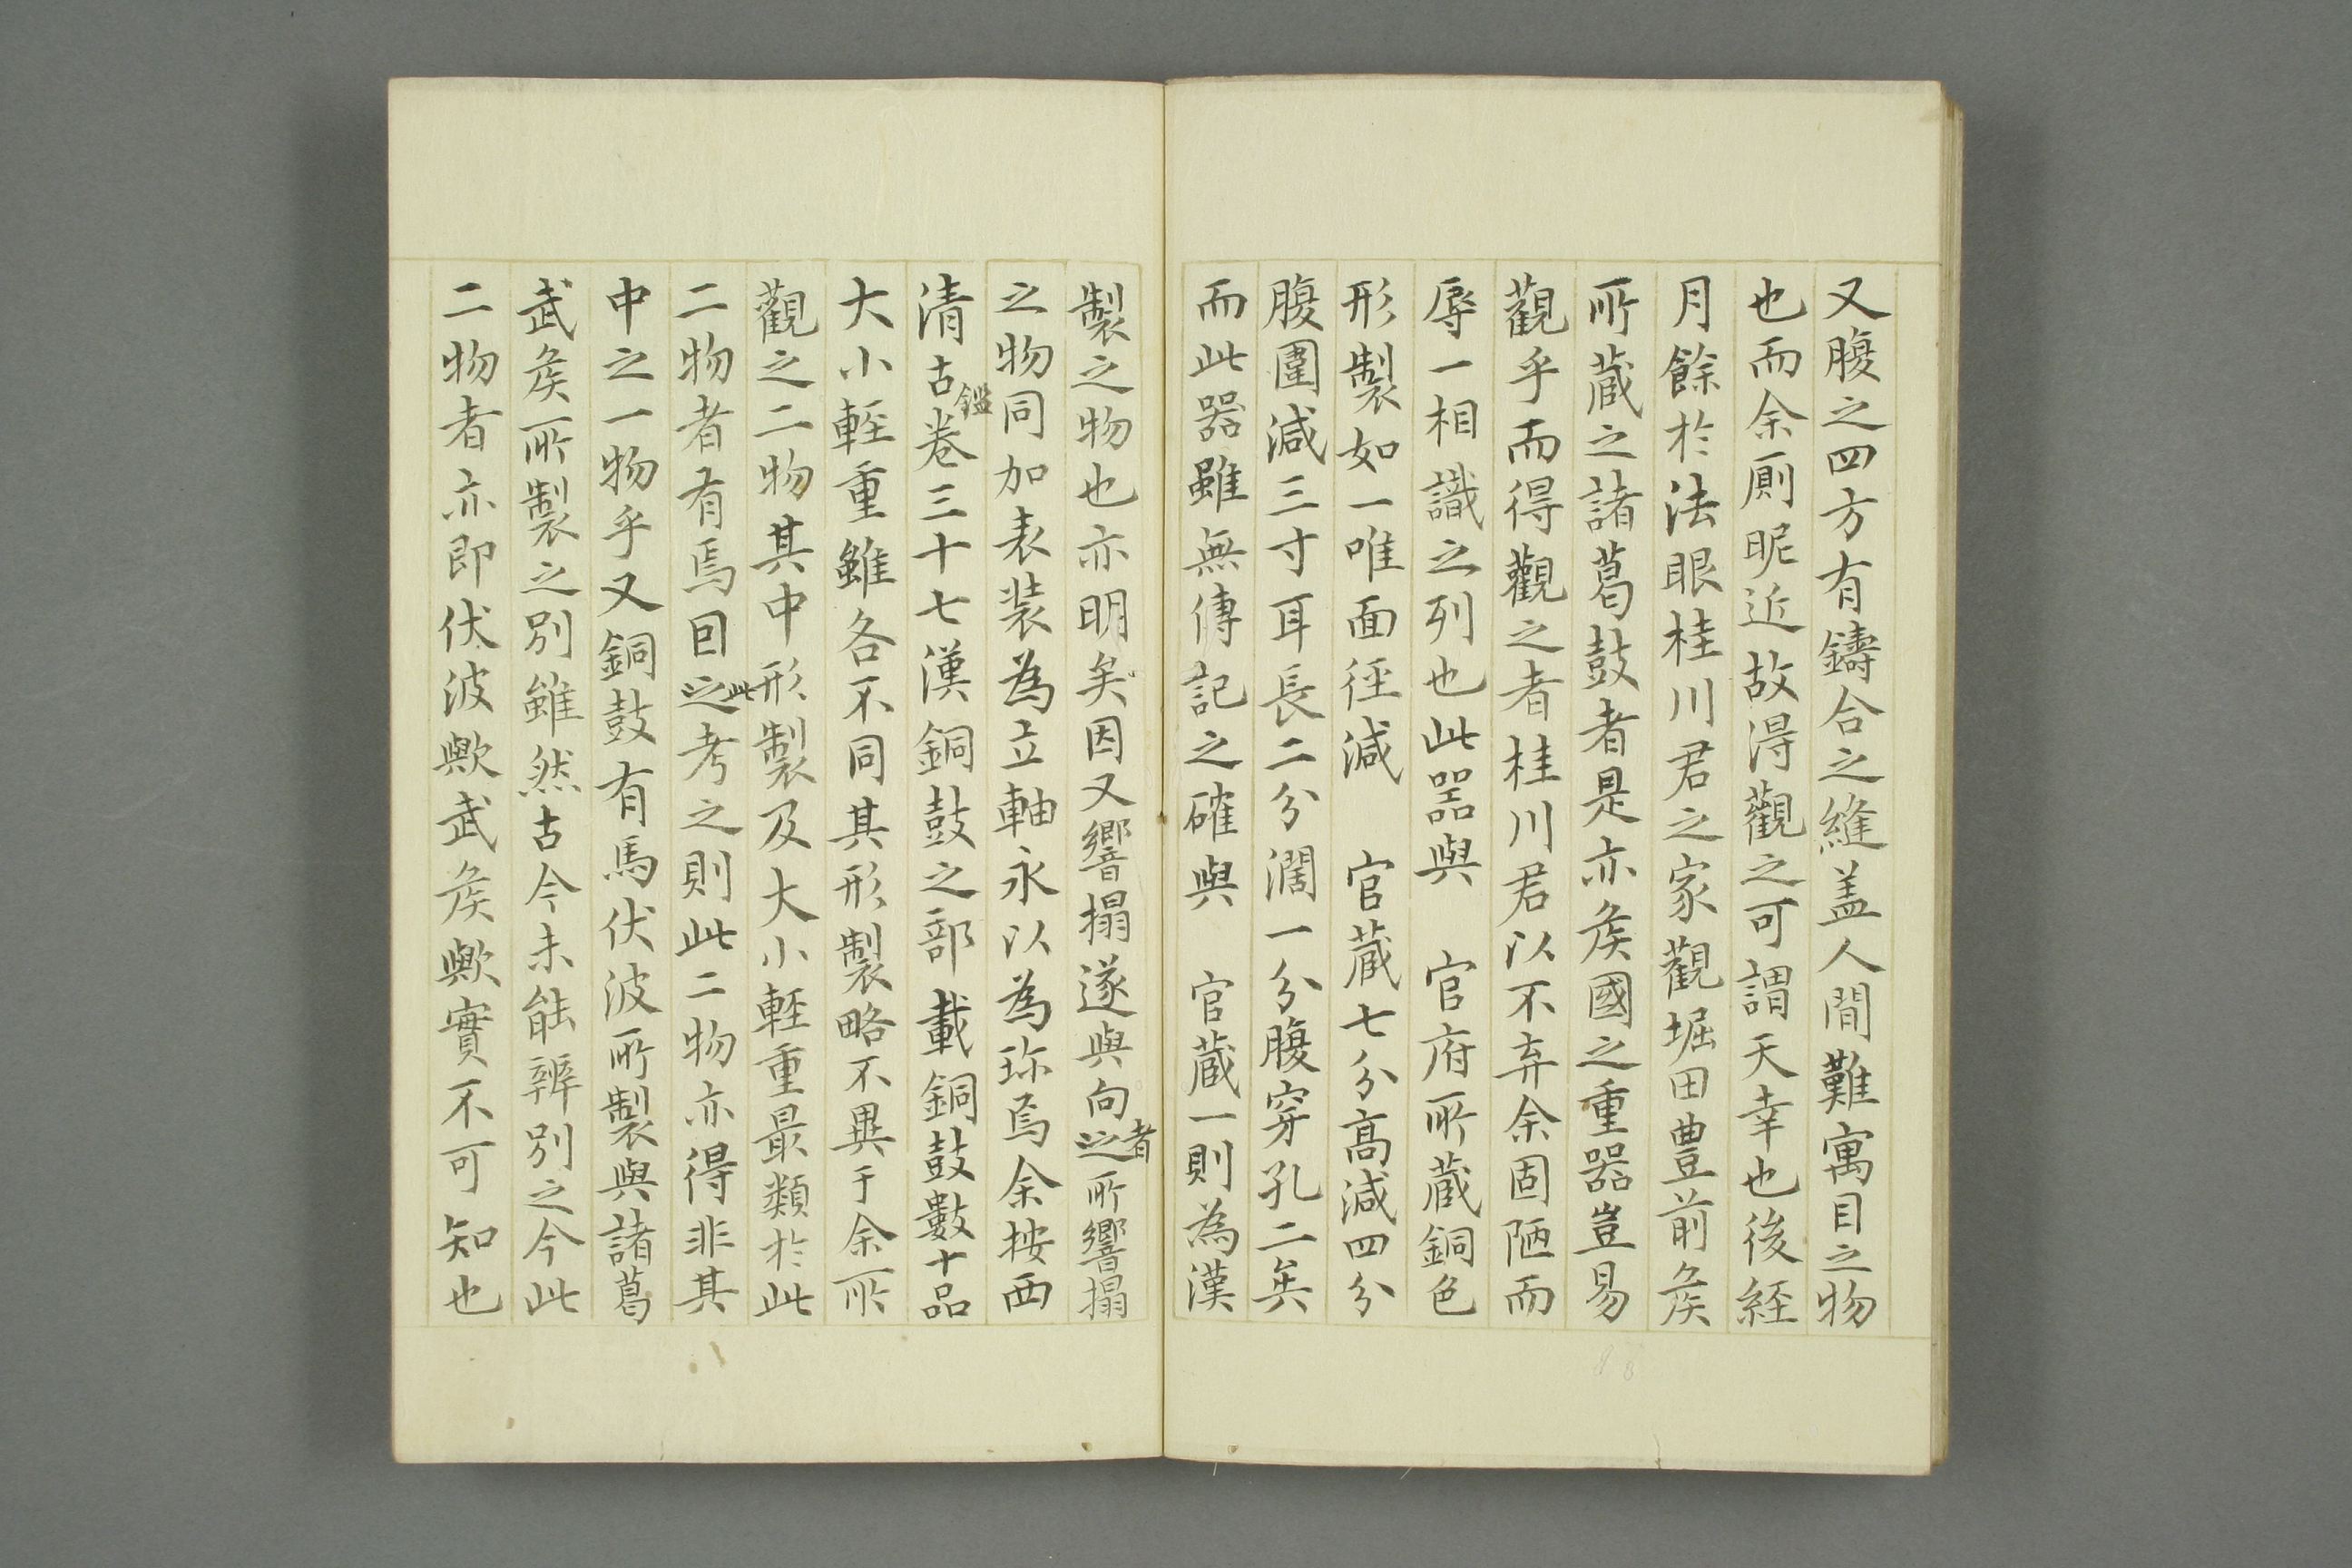 又腹之四方有鑄合之縫盖人間難寓目之物
也而余厠昵近故得觀之可謂天幸也後経
月餘於法眼桂川君之家觀堀田豊前矦
所蔵之諸葛鼓者是亦矦國之重器豈易
觀乎而得觀之者桂川君以不弃余固陋而
辱一相識之列也此噐與　官府所蔵銅色
形製如一唯面径減　官蔵七分高減四分
腹圍減三寸耳長二分濶一分腹穿孔二矣
而此器雖無傳記之確與　官蔵一則為漢
製之物也亦明矣因又響搨遂與向之者所響搨
之物同加表装為立軸永以為珎焉余按西
清古鑑卷三十七漢銅鼓之部載銅鼓數十品
大小軽重雖各不同其形製略不異于余所
觀之二物其中形製及大小軽重最類於此
二物者有焉囙之此考之則此二物亦得非其
中之一物乎又銅鼓有馬伏波所製與諸葛
武矦所製之別雖然古今未能辨別之今此
二物者亦即伏波歟武矦歟實不可知也